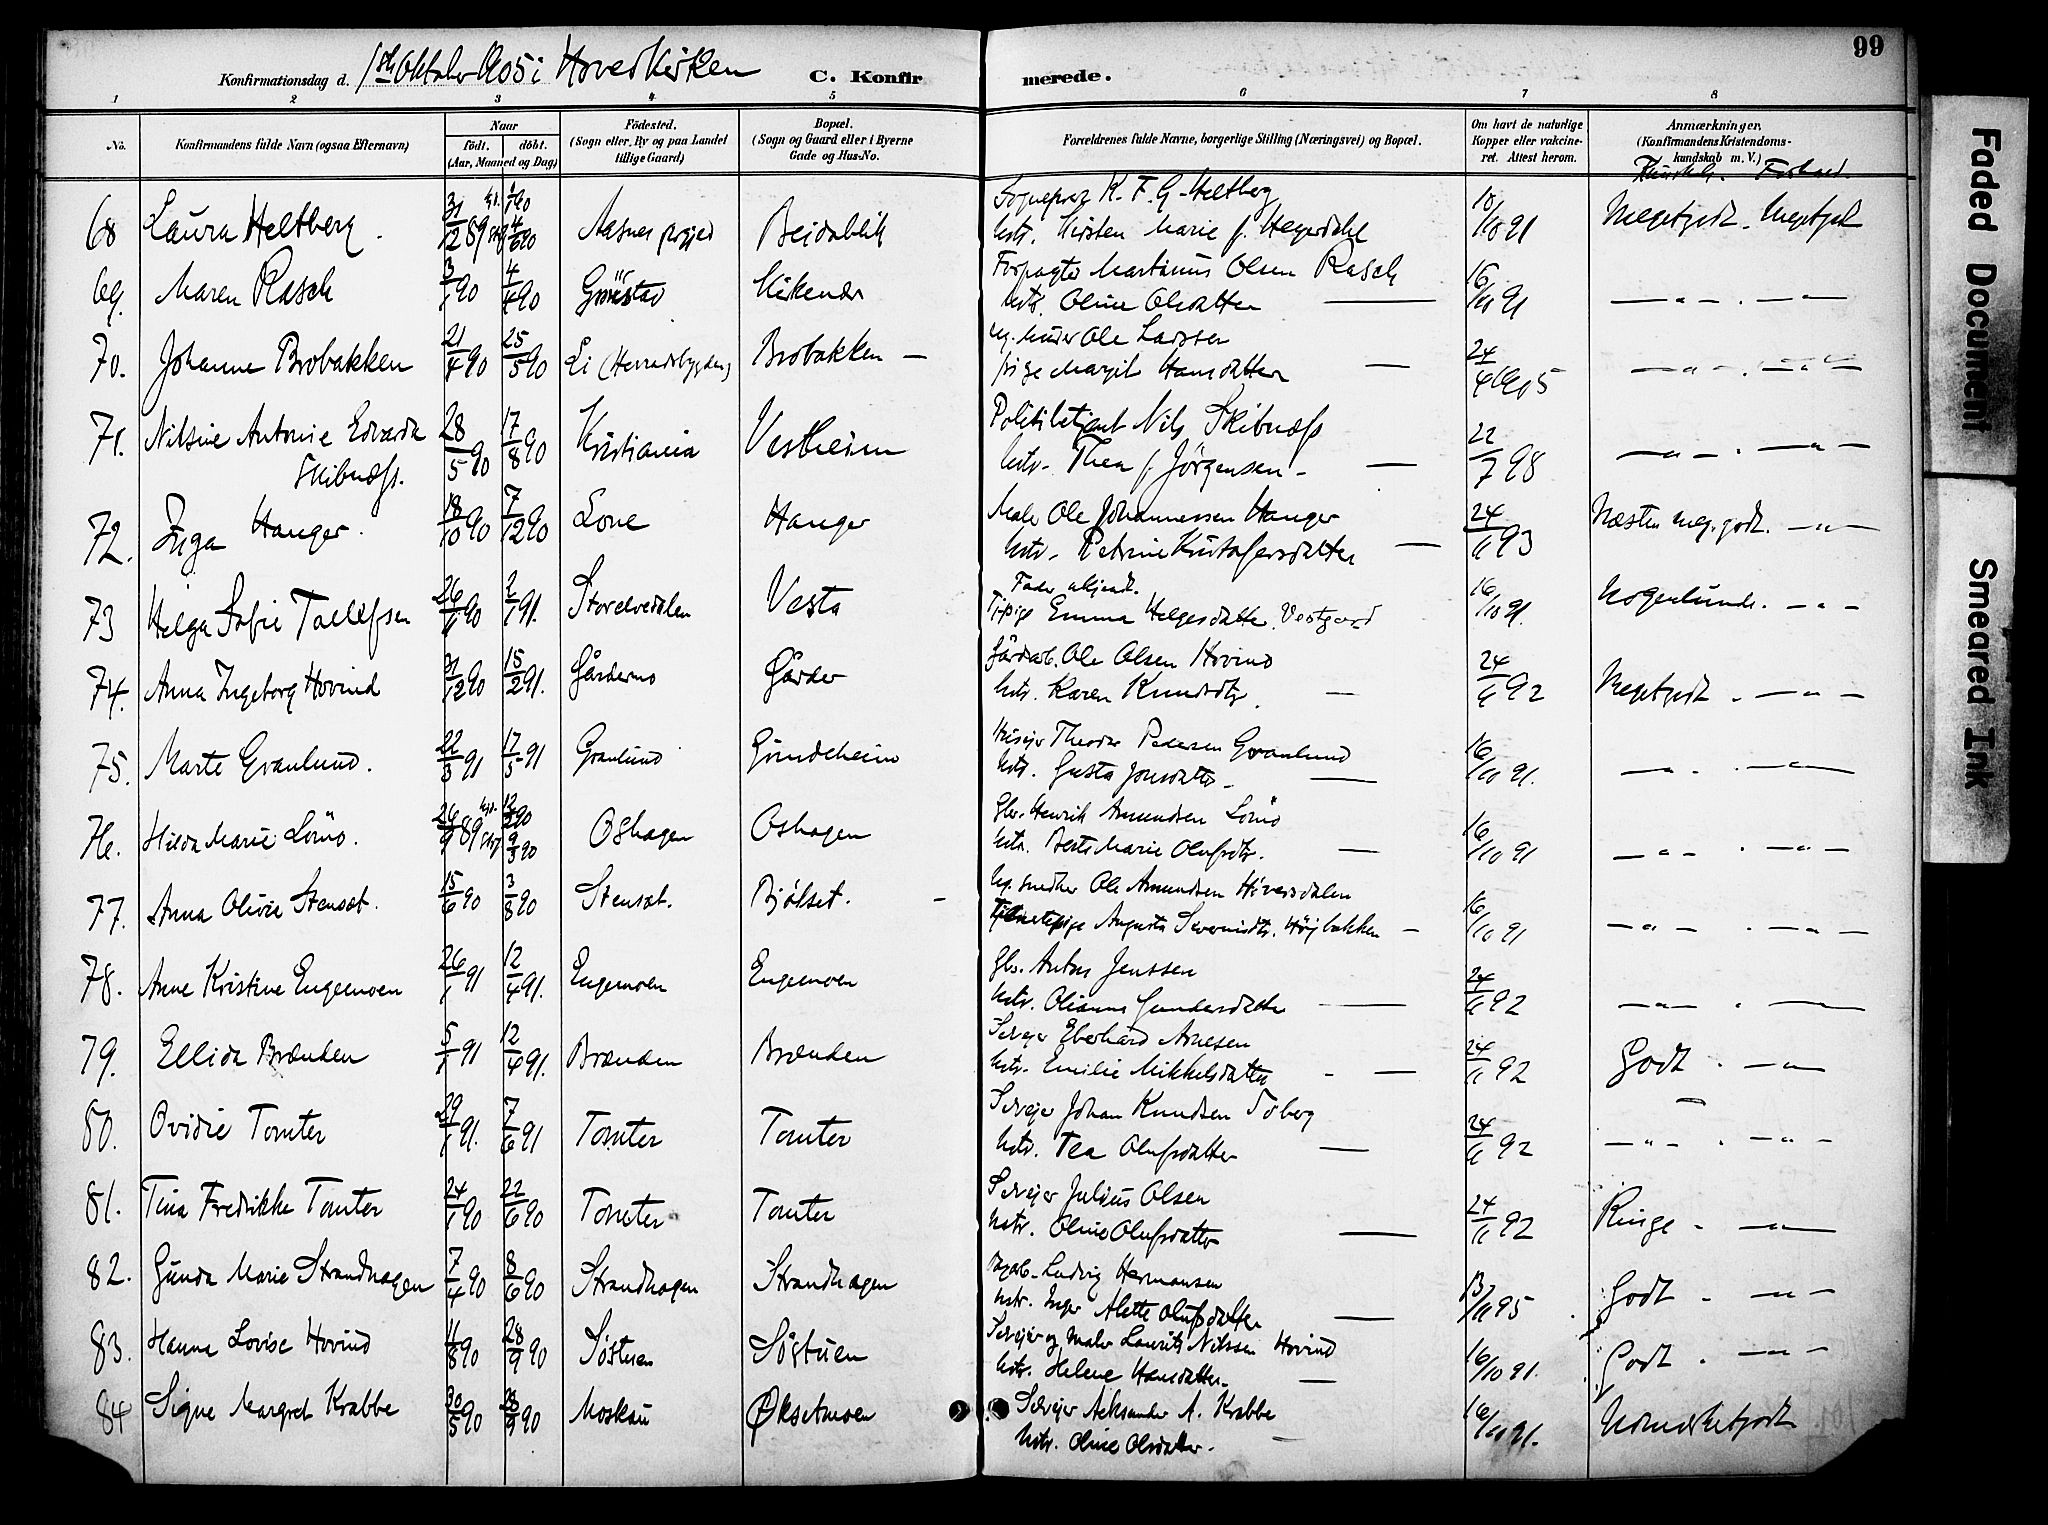 99
Konfirmationsdag d. 1ste Oktober 1905 i Hovedkirken C. Konfirmerede.
1 2 3 4 5 6 7 8
No.
Konfirmandens fulde Navn (ogsaa Efternavn)
Naar
födt. döbt.
(Aar, Maaned og Dag)
Födested.
(Sogn eller By og paa Landet
tillige Gaard)
Bopæl.
(Sogn og Gaard eller i Byerne
Gade og Hus-No.
Forældrenes fulde Navne, borgerlige Stilling (Næringsvei) og Bopæl.
Om havt de naturlige
Kopper eller vakcine-
ret. Attest herom.
Anmærkninger.
(Konfirmandens Kristendoms-
kundskab m. V.)
Kundsk. Forhold.
68 Laura Heltberg. 31/12 89 Aasnes prgjed Beidablik Sogneprest K. F. G. Heltberg 10/10 91 Megetgodt. Megetgodt
Hstr. Kirsten Marie f. Hegerdahl
69. Maren Rasch 3/1 90 4/4 90 Kirkenær Forpagter Martinus Olsen Rasch 16/10 91 — " — . — " —
hstr. Oline Olsdatter —
70. Johanne Brobakken 21/4 90 25/5 90 Li (Hernadsbygden) Brobakken — Ug. Ole Larssen 24/4 1905 — " — . — " —
pige Margit Hansdatter —
71. Nilsine Antonie Edvarda 28/5 90 17/8 90 Kristiania Vestheim Politibetjent Nils Skibnæss 22/7 98 — " — . — " —
Skibnæss. hstr. Thea f. Jörgensen —
72. Inga Hanger. 18/10 90 7/12 90 Lone Hanger Maler Ole Johannessen Hanger 24/6 93 Næsten meg. godt. — " —
hstr. Petrine Kristofersdatter —
73 Helga Sofie Tollefsen 26/11 90 2/1 91. Storelvedalen Vesta Fader ubkjendt. 16/10 91. Nogenlunde. — " —
Tj.pige Emma Helgesdatter Vestgaard
74. Anna Ingeborg Hovind 31/12 90 15/2 91. Gårdermo Gårder Gårdarb. Ole Olsen Hovind 24/6 92 Megetgodt . — " —
hstr. Karen Knudsdtr. —
75. Marte Granlund. 22/3 91 17/5 91 Granlund Grindeheim Husejer Theodor Pedersen Granlund 16/10 91. — " — . — " —
hstr. Gusta Jonsdatter —
76. Hilda Marie Lömo. 26/9 89 9/3 90 Oshagen Oshagen Gbr. Henrik Amundsen Lömo 16/10 91 — " — . — " —
hstr. Berte Marie Olufsdtr. —
77. Anna Olivie Stensæt. 15/6 90 3/8 90 Stensæt. Bjölset. — Ug. snedker Ole Amundsen Höversdalen 16/10 91 — " — . — " —
Tjenestepige Augusta Severinsdtr. Höjbakken —
78. Anne Kristine Engemoen 26/1 91 12/4 91. Engemoen Engemoen Gbr. Anton Jenssen 24/6 92 — " — . — " —
hstr. Oliana Gundersdatter —
79. Ellida Brænden 5/1 91 12/4 91. Brænden Brænden Selvejer Eberhard Arnesen 24/6 92 Godt . — " —
hstr. Emilie Mikkelsdatter —
80. Ovidie Tomter 29/1 91. 7/6 91 Tomter Tomter Selvejer Johan Knudsen Toberg 24/6 92 — " — . — " —
hstr. Tea Olufsdatter —
81. Tina Fredrikke Tomter 24/1 90 22/6 90 Tomter Tomter Selvejer Julius Olsen 24/6 92 Ringe . — " —
hstr. Oline Olufsdatter —
82. Gunda Marie Strandhagen 7/4 90 8/6 90 Strandhagen Strandhagen Ludvig Hermansen 13/11 95 Godt . — " —
hstr. Inger Alette Olufsdatter —
83. Hanna Lovise Hovind 11/8 90 28/9 90 Söstuen Söstuen Selvejer og maler Laurits Nilssen Hovind 16/10 91. Godt . — " —
hstr. Helene Hansdatter —
84 Signe Margret Krabbe 30/5 90 28/9 90 Moskau Öksetmoen Selvejer Aleksander A. Krabbe 16/10 91. Udmerketgodt
hstr. Oline Olsdatter. —
Faded Document
Smeared Ink